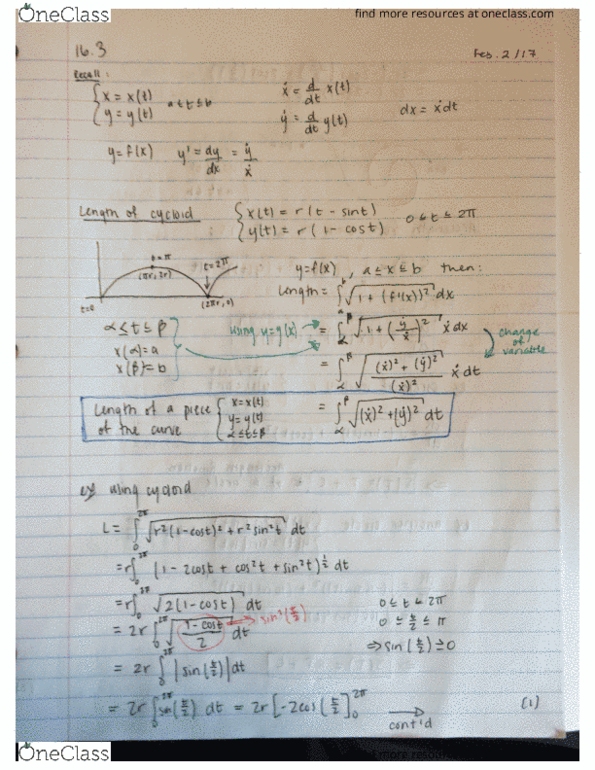 OneClass
find more resources at oneclass.com
16.3
Feb. 2/17
Recall:
{ x = x(t)
y = y(t) a ≤ t ≤ b
ẋ = d/dt x(t)
ẏ = d/dt y(t)
dx = ẋdt
y = f(x) y' = dy/dx = ẏ/ẋ
Length of cycloid { x(t) = r(t - sint)
y(t) = r(1 - cost) 0 ≤ t ≤ 2π
t=π
(πr, 2r)
t=2π
t=0
(2πr, 0)
y=f(x), a ≤ x ≤ b then:
Length = ∫_a^b √(1 + (f'(x))²) dx
α ≤ t ≤ β
x(α)=a
x(β)=b
using y=g(x) → = ∫_α^β √(1 + (ẏ/ẋ)²) ẋdx
change of variable
= ∫_α^β √(((ẋ)² + (ẏ)²)/(ẋ)²) ẋdt
Length of a piece of the curve { x=x(t)
y=y(t)
α≤t≤β
= ∫_α^β √((ẋ)² + (ẏ)²) dt
ex/ using cycloid
L = ∫_0^2π √(r²(1-cost)² + r²sin²t) dt
= r∫_0^2π (1 - 2cost + cos²t + sin²t)^½ dt
= r∫_0^2π √(2(1-cost)) dt
= 2r ∫_0^2π √((1-cost)/2) dt → sin²(t/2)
0 ≤ t ≤ 2π
0 ≤ t/2 ≤ π
⇒ sin(t/2) ≥ 0
= 2r ∫_0^2π |sin(t/2)| dt
= 2r ∫_0^2π sin(t/2) dt = 2r [-2cos(t/2)]_0^2π
cont'd
(1)
OneClass